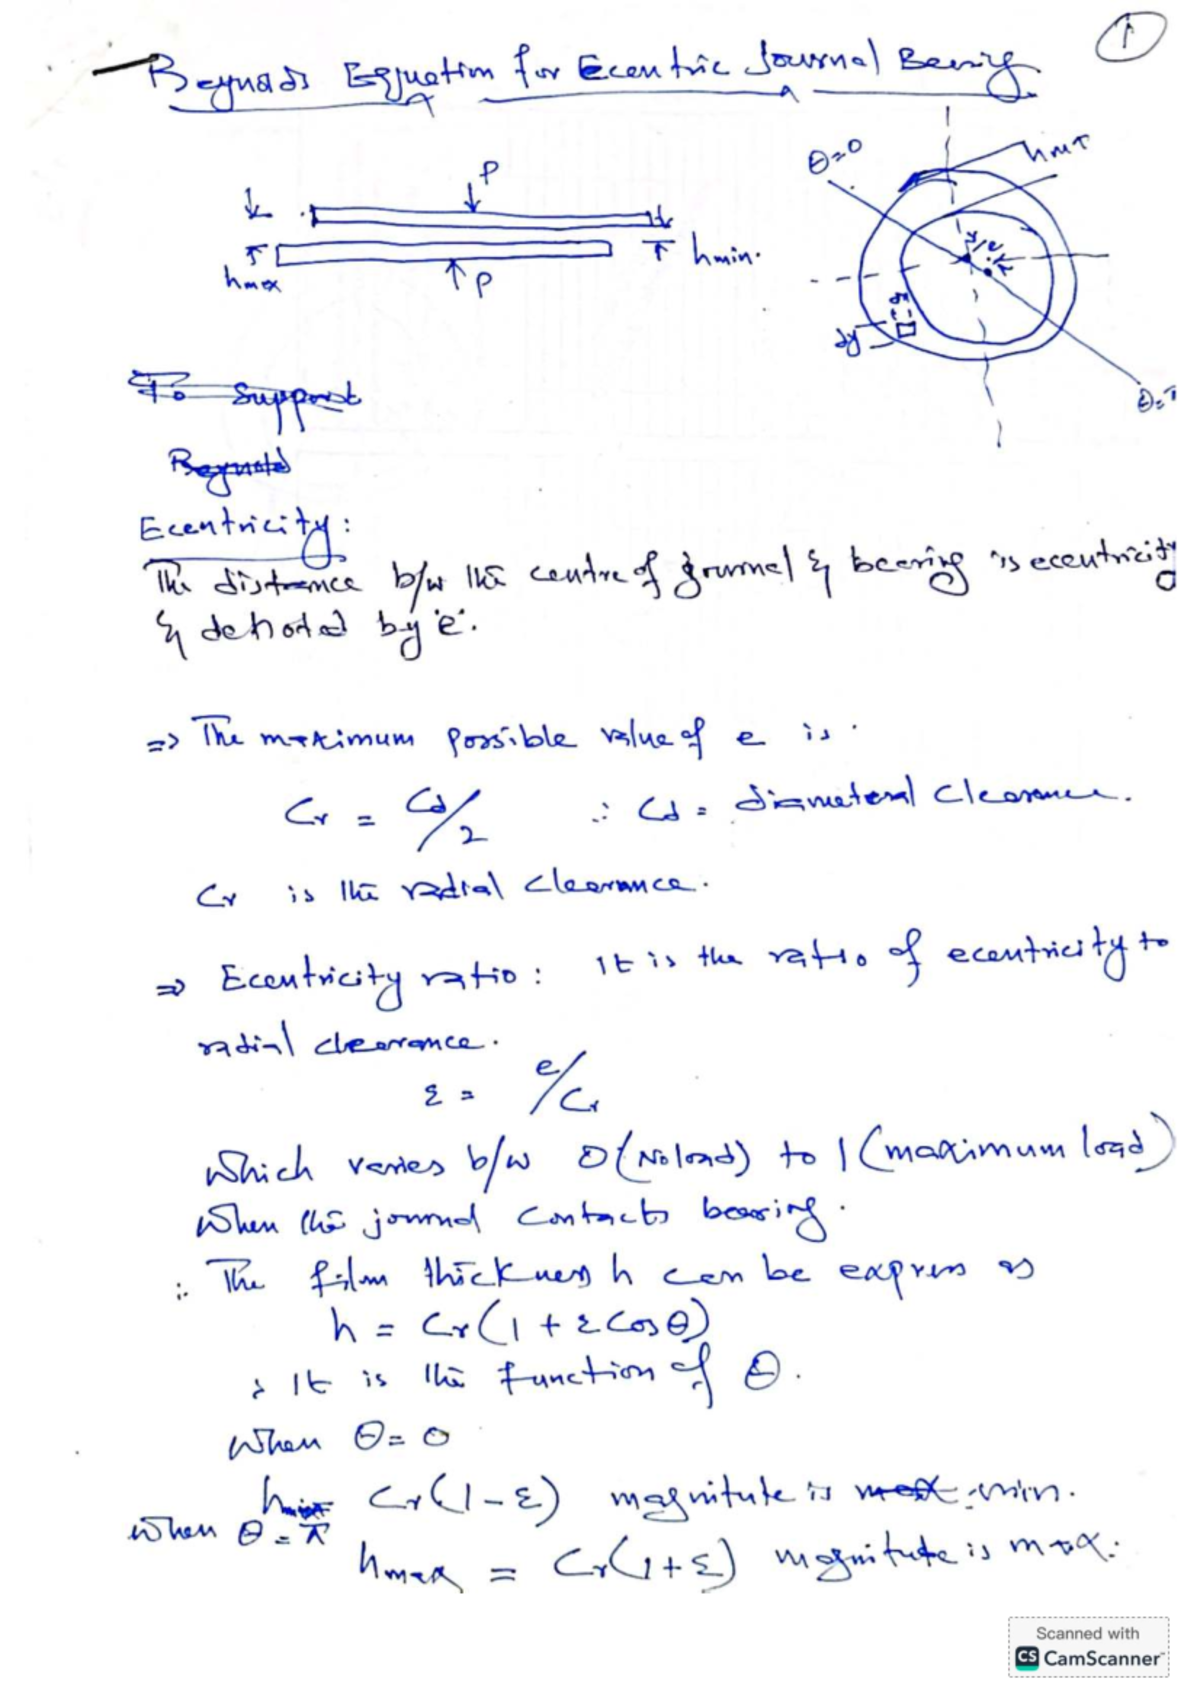 1
Reynads Equation for Ecentric Journal Bearing
θ=0
hmax
P
hmin.
hmax
P
e
dx
dy
θ=π
To Support
Reynold
Ecentricity:
The distance b/w the centre of journal & bearing is ecentricity
& denoted by 'e'.
=> The maximum possible value of e is.
Cr = Cd/2 ∴ Cd = diameteral Clearance.
Cr is the radial clearance.
=> Ecentricity ratio: It is the ratio of ecentricity to
radial clearance.
ε = e/Cr
which varies b/w 0 (No load) to 1 (maximum load)
when the journal contacts bearing.
∴ The film thickness h can be express as
h = Cr(1 + ε Cos θ)
∴ It is the function of θ.
when θ = 0
hmin Cr(1-ε) magnitute is max min.
when θ = π
hmax = Cr(1+ε) magnitute is max.
Scanned with
CS CamScanner